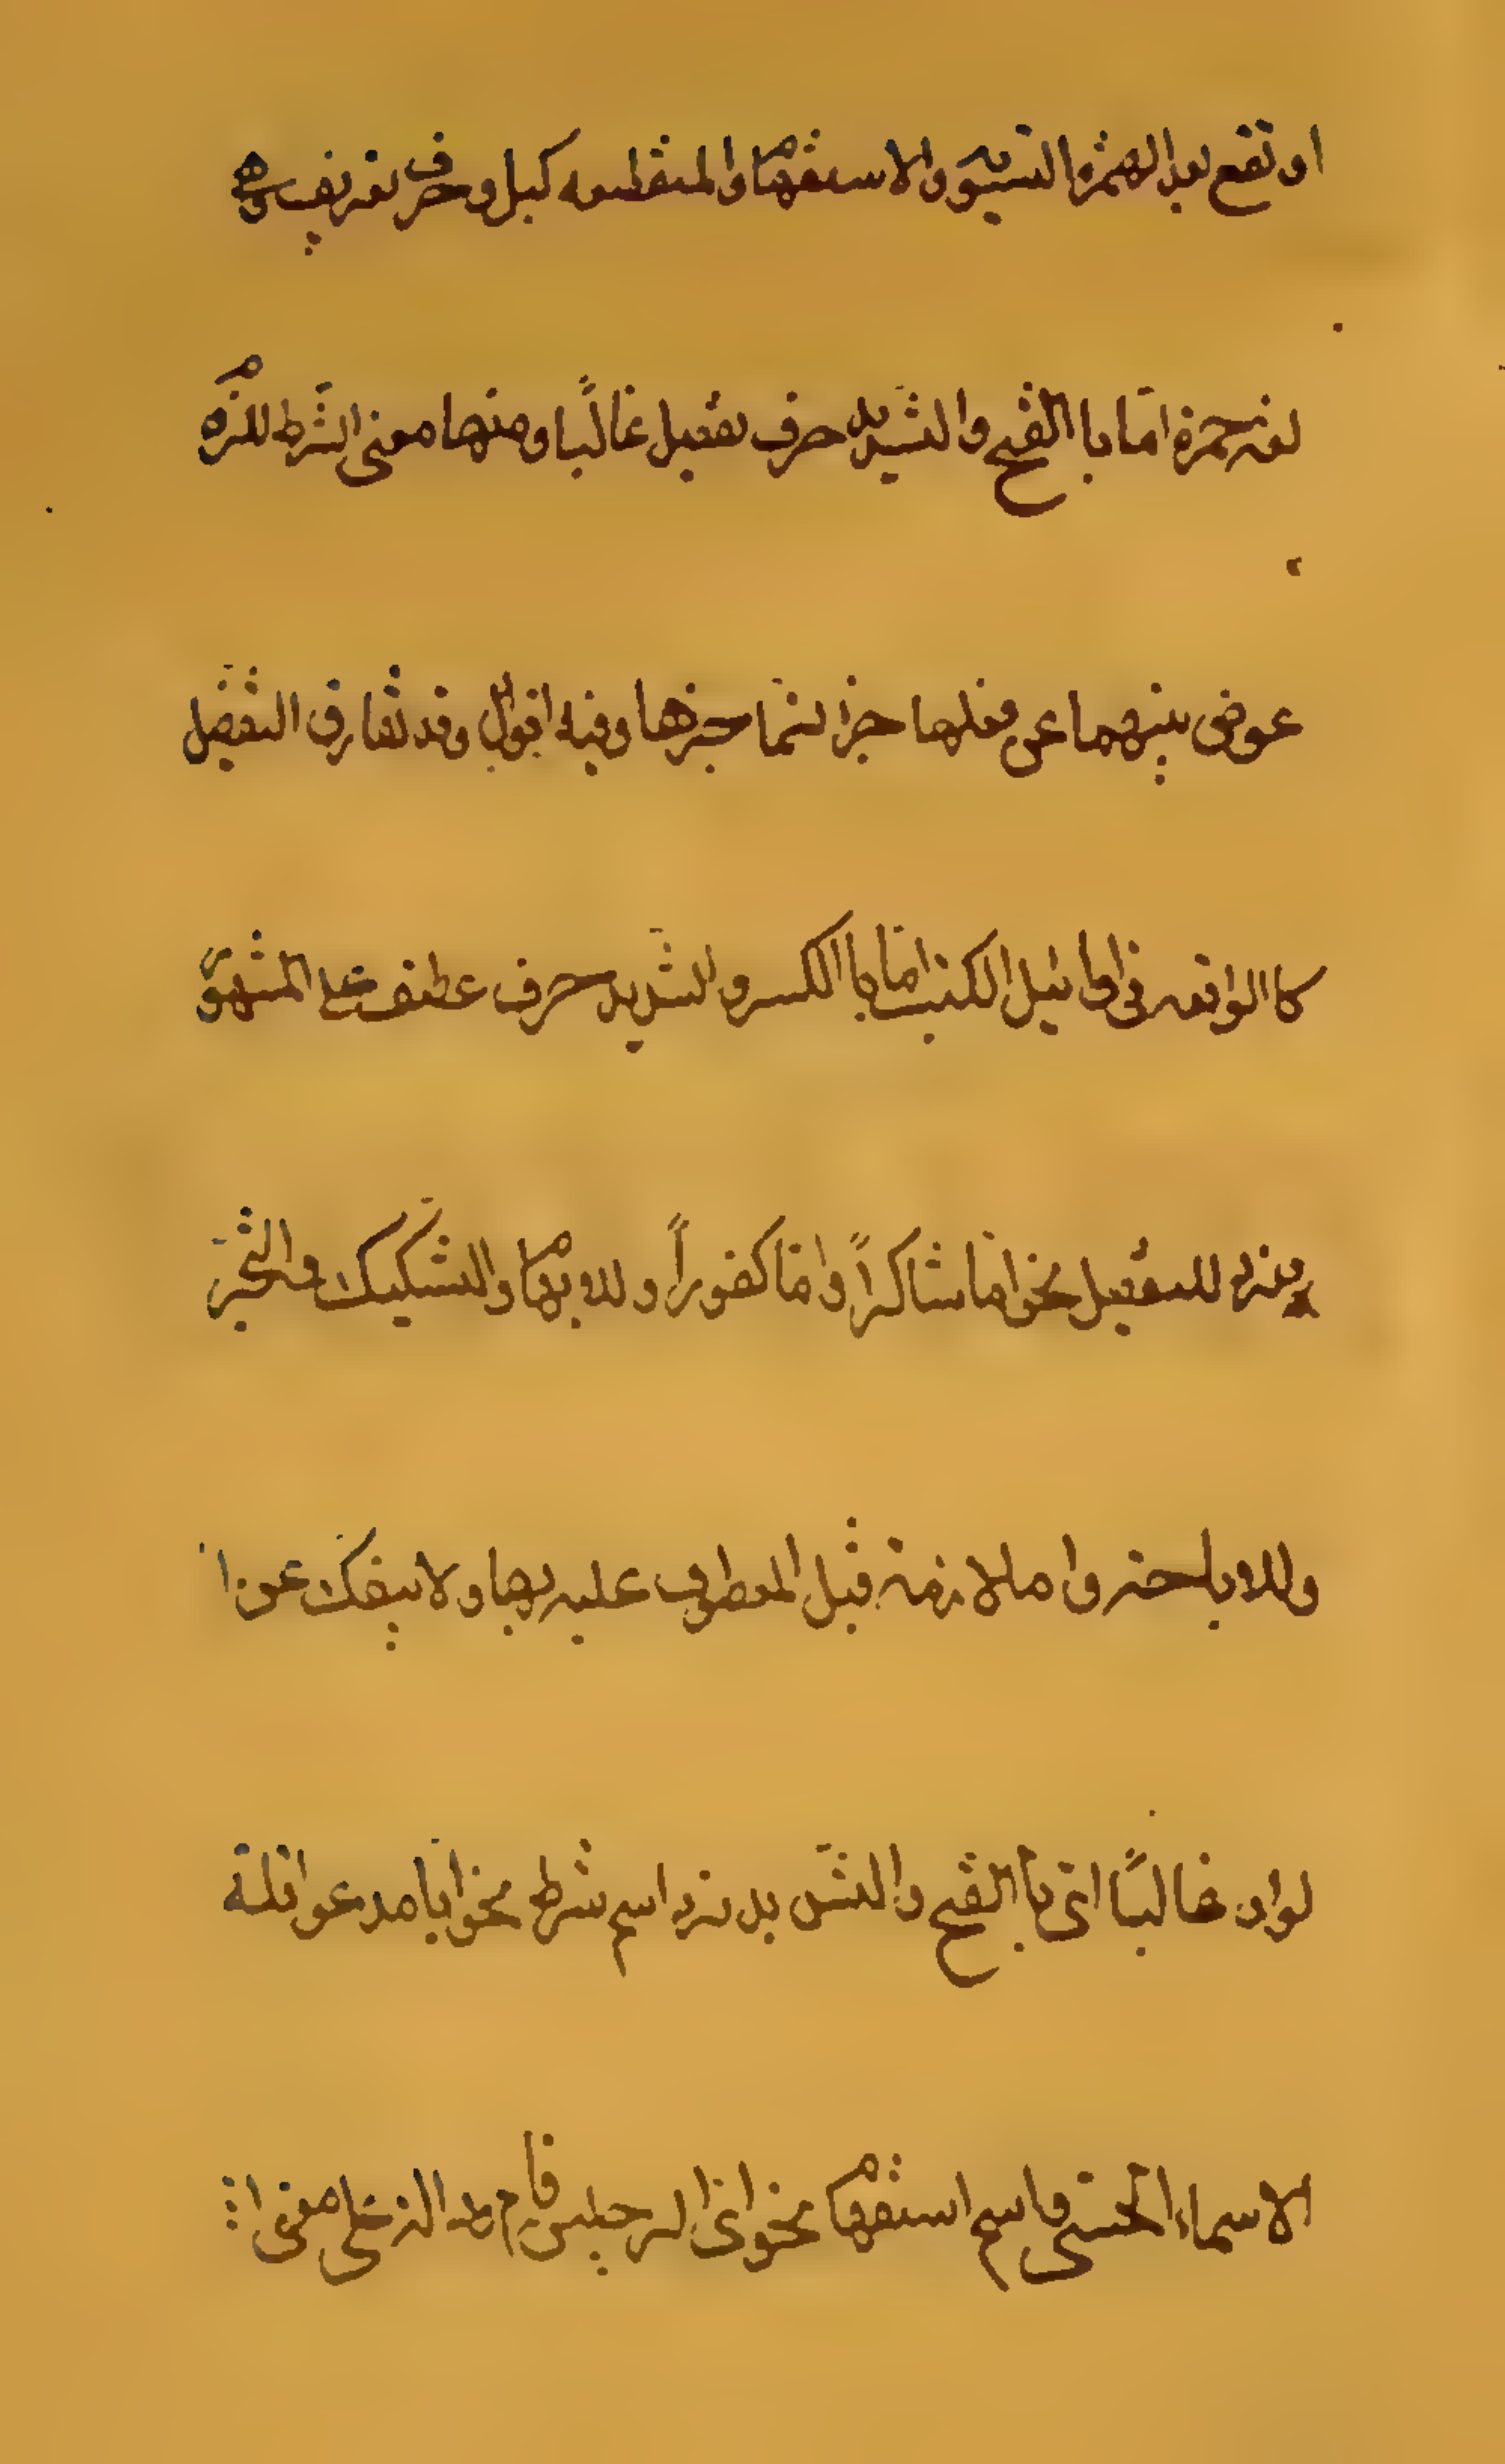 او تقع بعد الهمزة التسوية والاستفهام والمنقطعه كبل وحرف تعريف في
لغة حمزة امّا بالفتح والتشديد حرف تفصيل غالبًا ومنها معنى الشرط للزم
عوض بينهما عن فعلها جزا نما حيزها وفيه اقوال وقد تفارق التفصيل
كالواقعه في اوايل الكتب امّا بالكسر والتشديد حرف عطف على المشهور
يرد للتفصيل نحو امّا شاكرًا وامّا كفورًا وللابهام والتشكيك والتخير
وللاباحة واما لازمة قبل المعطوف عليه بها ولا ينفك عن ا
لواو غالبًا ايّ بالفتح والتشديد ترد اسم شرط نحو ايّا مد عوا فله
الاسماء الحسنى فاسم استفهام نحو ايّ الرجلين قام الدر على معنى ا